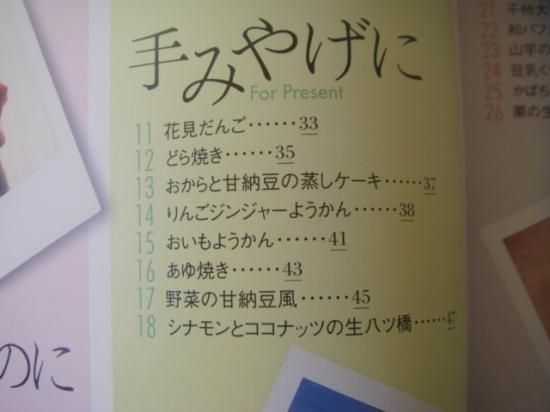 手みやげに
For Present
11 花見だんご・・・・・・33
12 どら焼き・・・・・・35
13 おからと甘納豆の蒸しケーキ・・・・・・37
14 りんごジンジャーようかん・・・・・・38
15 おいもようかん・・・・・・41
16 あゆ焼き・・・・・・43
17 野菜の甘納豆風・・・・・・45
18 シナモンとココナッツの生八ツ橋・・・・・・47
のに
21 干柿大
22 和パフ
23 山芋の
24 豆乳く
25 かぼち
26 栗の生